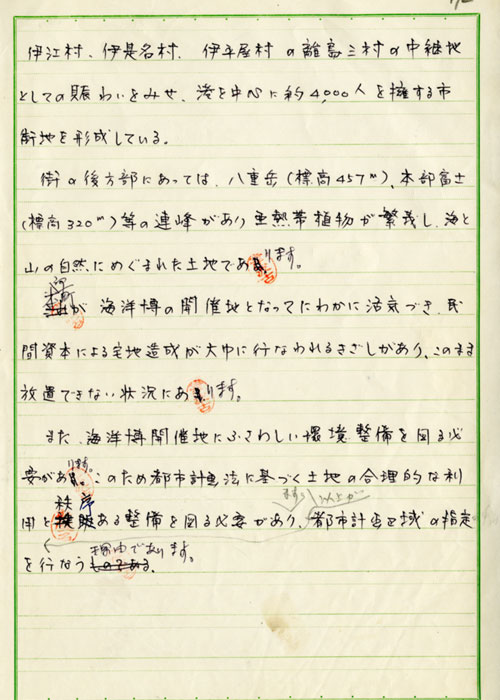 伊江村、伊是名村、伊平屋村の離島三村の中継地
としての賑わいをみせ、港を中心に約4,000人を擁する市
街地を形成している。
街の後方部にあっては、八重岳(標高457m)、本部富士
(標高320m)等の連峰があり亜熱帯植物が繁茂し、海と
山の自然にめぐまれた土地であります。
が海洋博の開催地となってにわかに活気づき、民
間資本による宅地造成が大巾に行なわれるきざしがあり、このまま
放置できない状況にあります。
また、海洋博開催地にふさわしい環境整備を図る必
要があります。このため都市計画法に基づく土地の合理的な利
用と秩序ある整備を図る必要があり、都市計画区域の指定
を行なう理由であります。